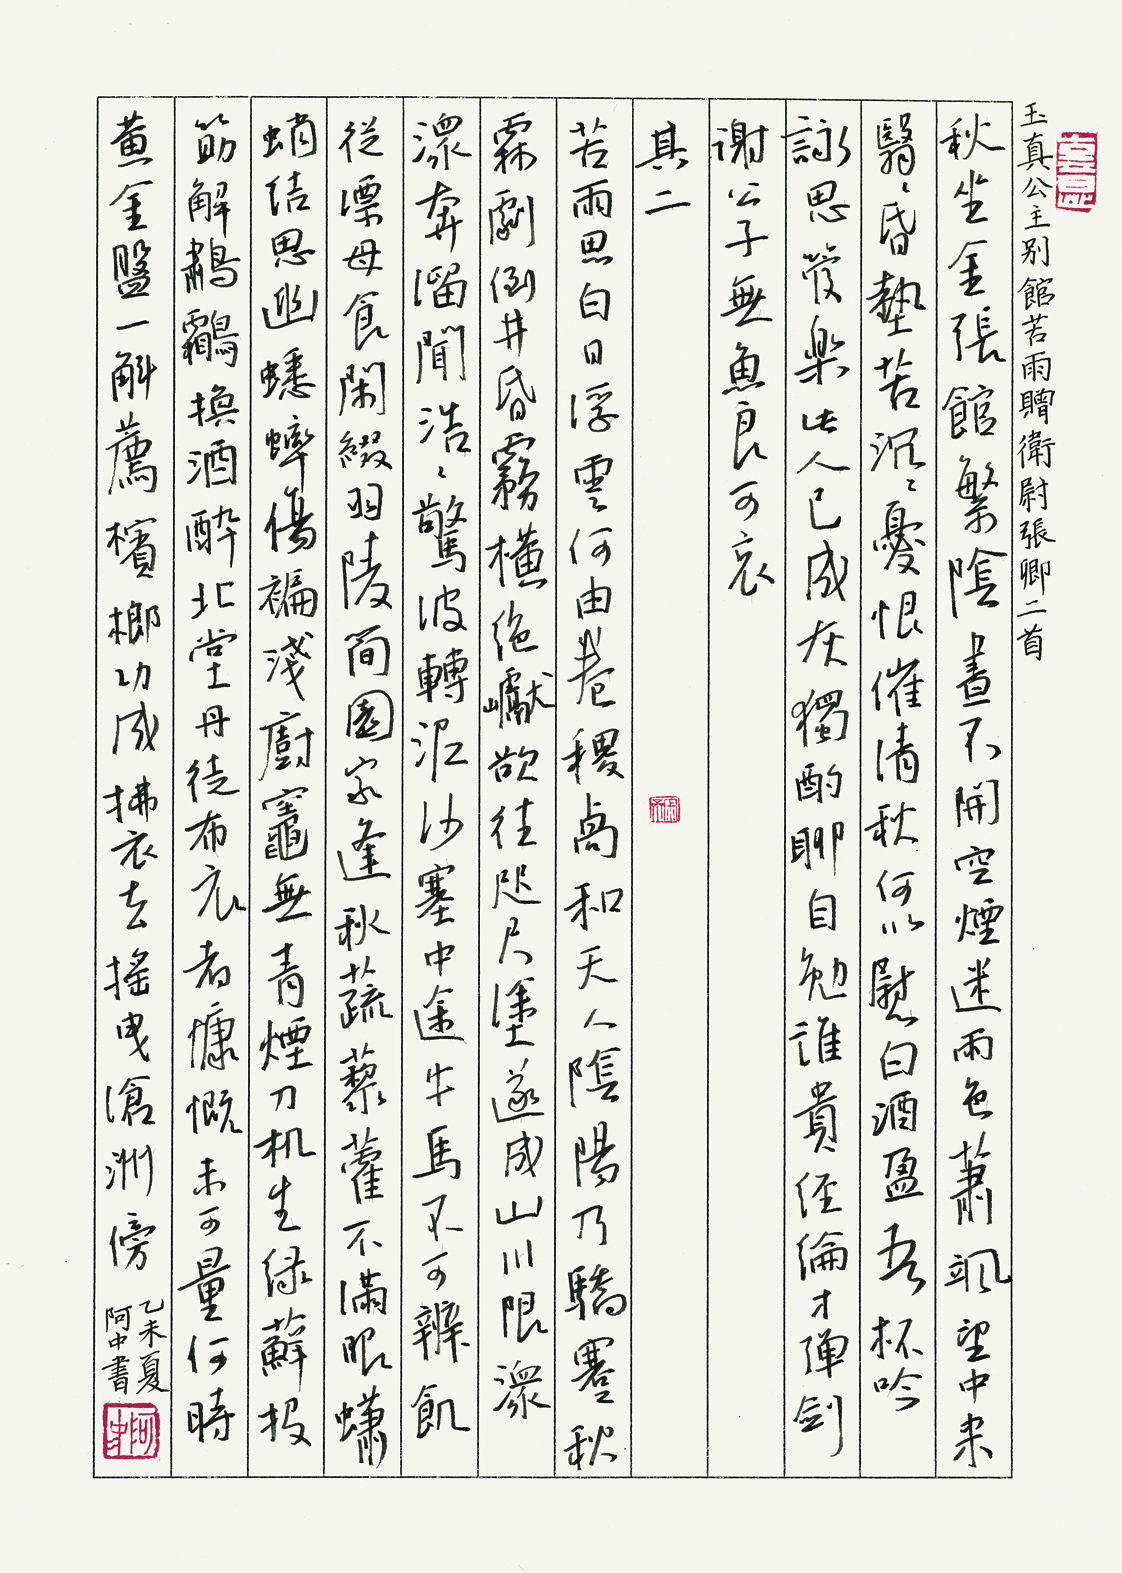 玉真公主別館苦雨贈衛尉張卿二首
秋坐金張館繁陰晝不開空煙迷雨色蕭颯望中来
翳〻昏墊苦沉〻憂恨催清秋何以慰白酒盈吾杯吟
詠思管樂此人已成灰獨酌聊自勉誰貴經綸才彈劍
謝公子無魚良可哀
其二
苦雨思白日浮雲何由卷稷卨和天人陰陽乃驕蹇秋
霖劇倒井昏霧橫絕巘欲往咫尺塗遂成山川限潨
潨奔溜聞浩〻驚波轉泥沙塞中途牛馬不可辨飢
從漂母食閑綴羽陵簡園家逢秋蔬藜藿不滿眼蠨
蛸結思幽蟋蟀傷褊淺廚竈無青煙刀机生綠蘚投
筯解鷫鸘換酒醉北堂丹徒布衣者慷慨未可量何時
黃金盤一斛薦檳榔功成拂衣去搖曳滄洲傍
乙未夏
阿中書